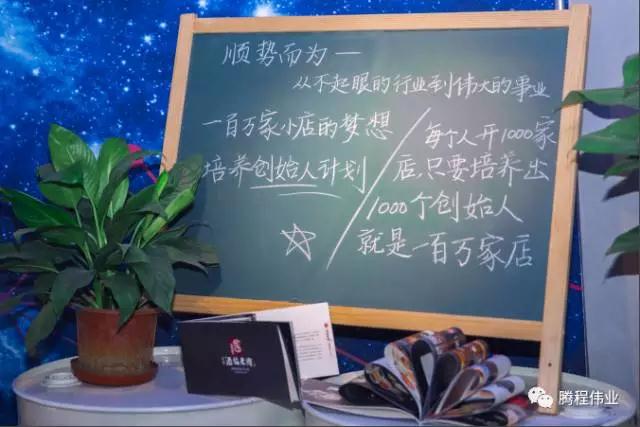 顺势而为一
从不起眼的行业到伟大的事业
一百万家小店的梦想
培养创始人计划
每个人开1000家
店,只要培养出
1000个创始人
就是一百万家店
腾程伟业